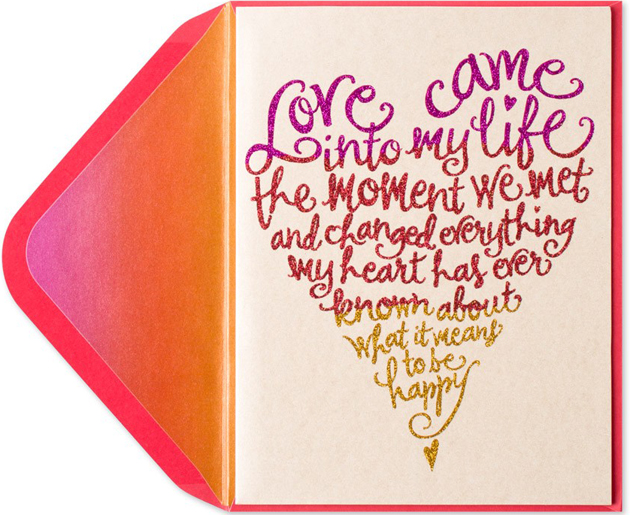 Love came
into my life
the moment we met
and changed everything
my heart has ever
known about
what it means
to be
happy